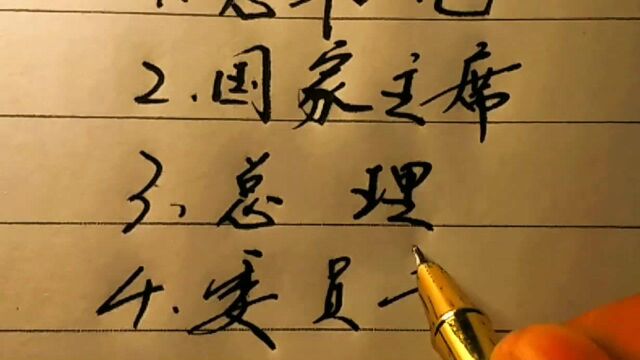 2.国家主席
3、总理
4.委员